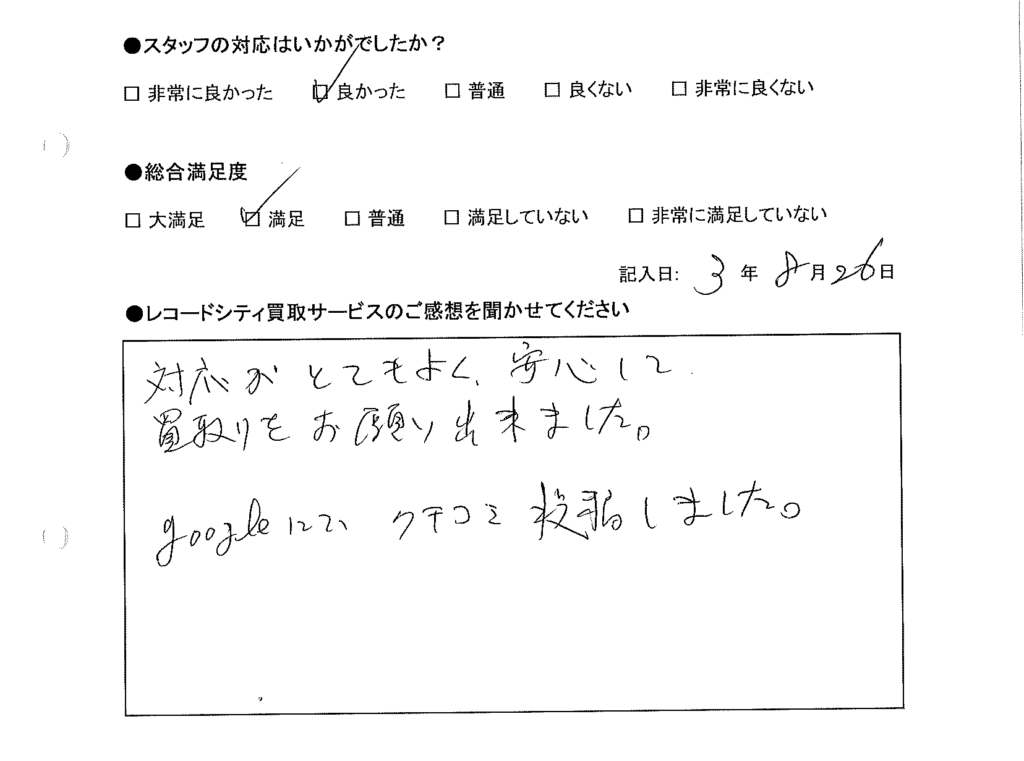 ●スタッフの対応はいかがでしたか？
□ 非常に良かった ☑ 良かった □ 普通 □ 良くない □ 非常に良くない
●総合満足度
□ 大満足 ☑ 満足 □ 普通 □ 満足していない □ 非常に満足していない
記入日: 3 年 8月26日
●レコードシティ買取サービスのご感想を聞かせてください
対応がとてもよく、安心して
買取りをお願い出来ました。
googleにて クチコミ 投稿しました。